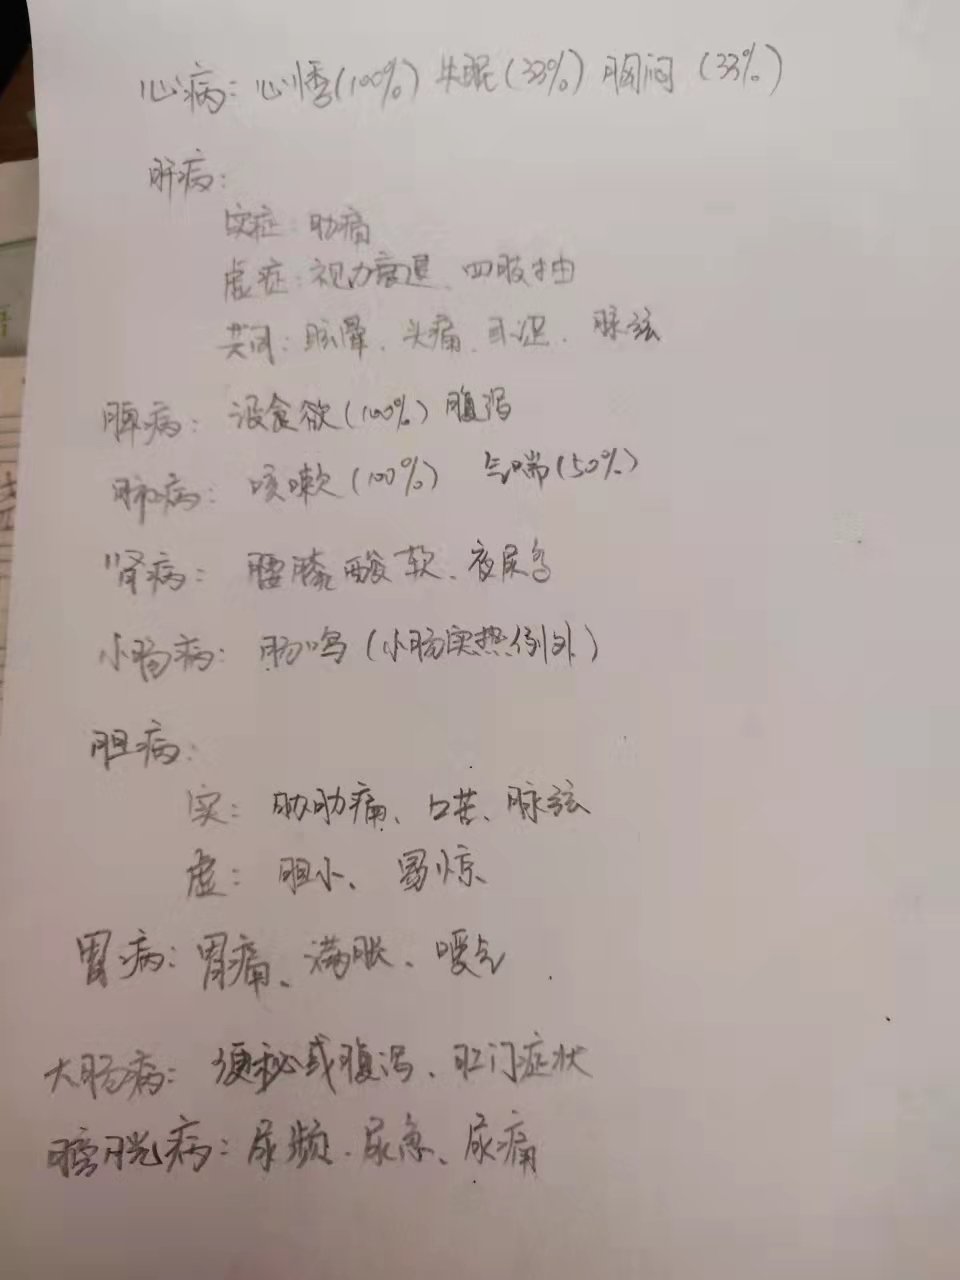 心病：心悸(100%) 失眠(33%) 胸闷 (33%)
肝病：
实症：肋痛
虚症：视力衰退、四肢抽
共同：眩晕、头痛、脉弦
脾病：没食欲(100%) 腹泻
肺病：咳嗽(100%) 气喘(50%)
肾病：腰膝酸软、夜尿多
小肠病：肠鸣(小肠实热例外)
胆病：
实：胁肋痛、口苦、脉弦
虚：胆小、易惊
胃病：胃痛、满胀、嗳气
大肠病：便秘或腹泻、肛门症状
膀胱病：尿频、尿急、尿痛